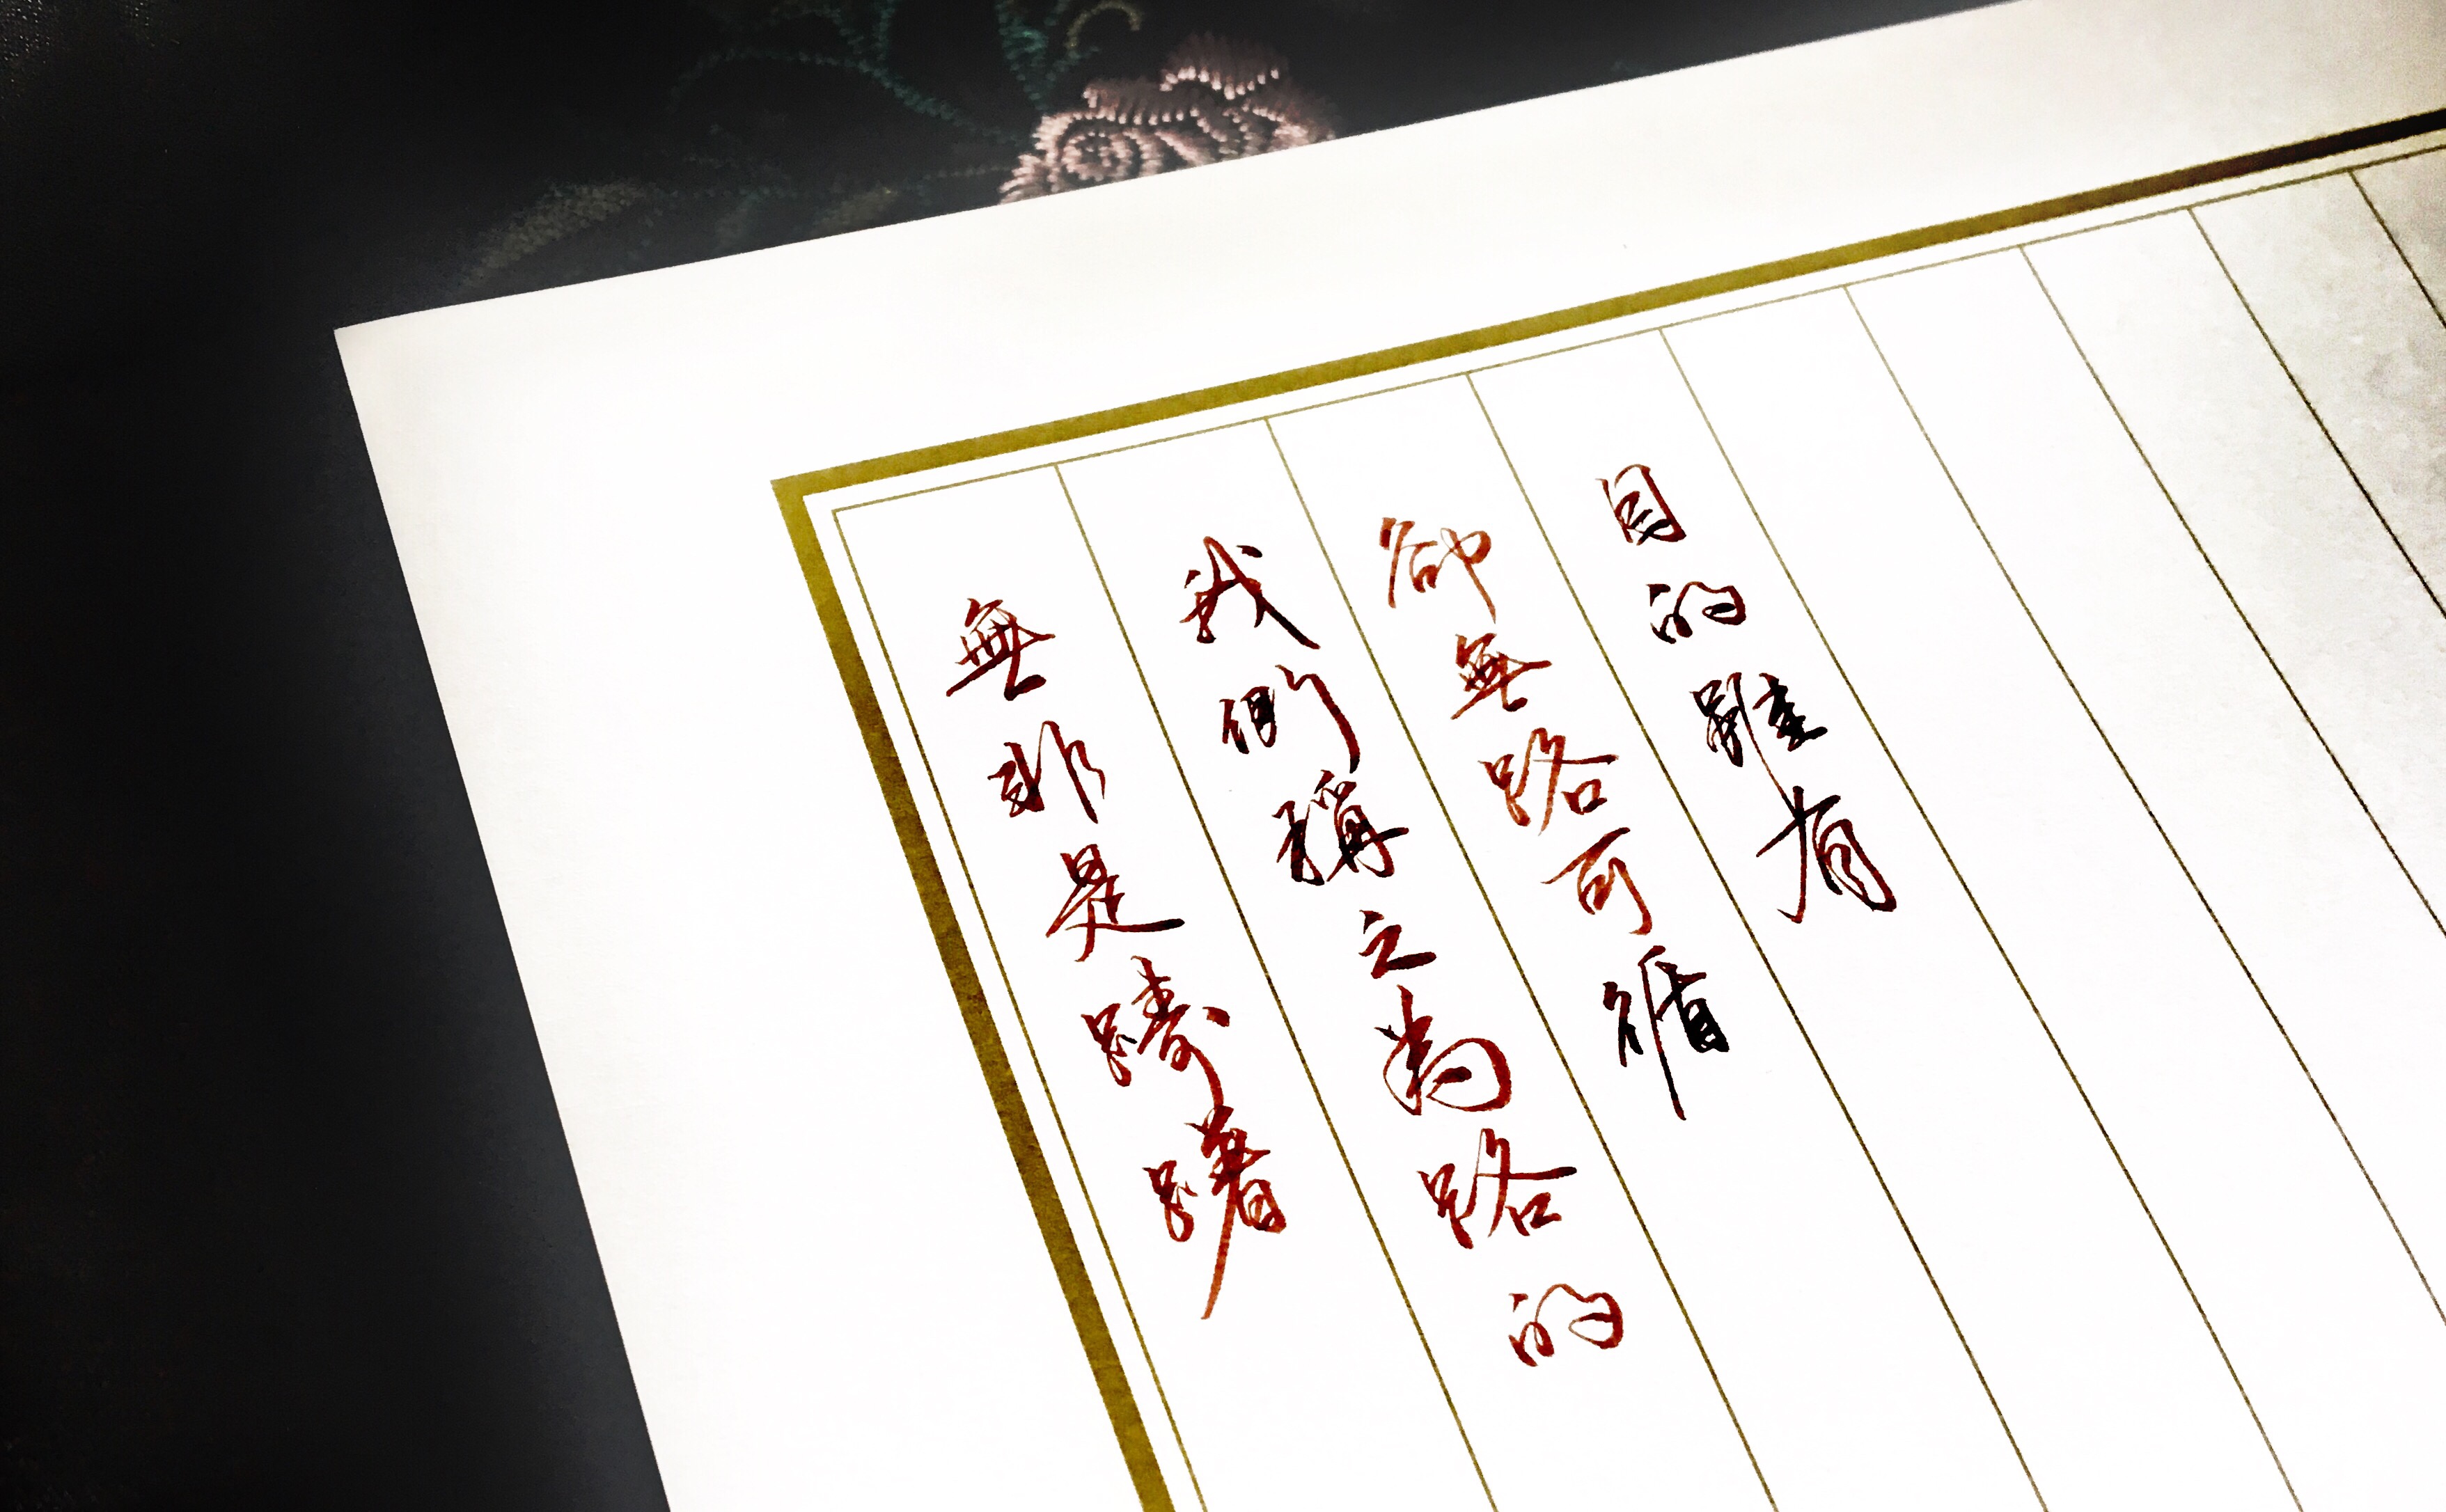 目的雖有
卻無路可循
我們稱之為路的
無非是躊躇